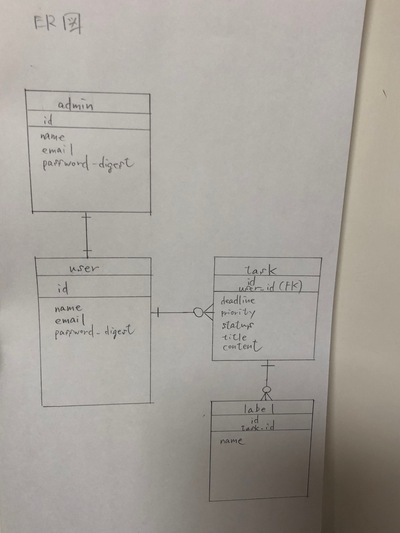 ER図
admin
id
name
email
password_digest
user
id
name
email
password_digest
task
id
user_id (FK)
deadline
priority
status
title
content
label
id
task_id
name